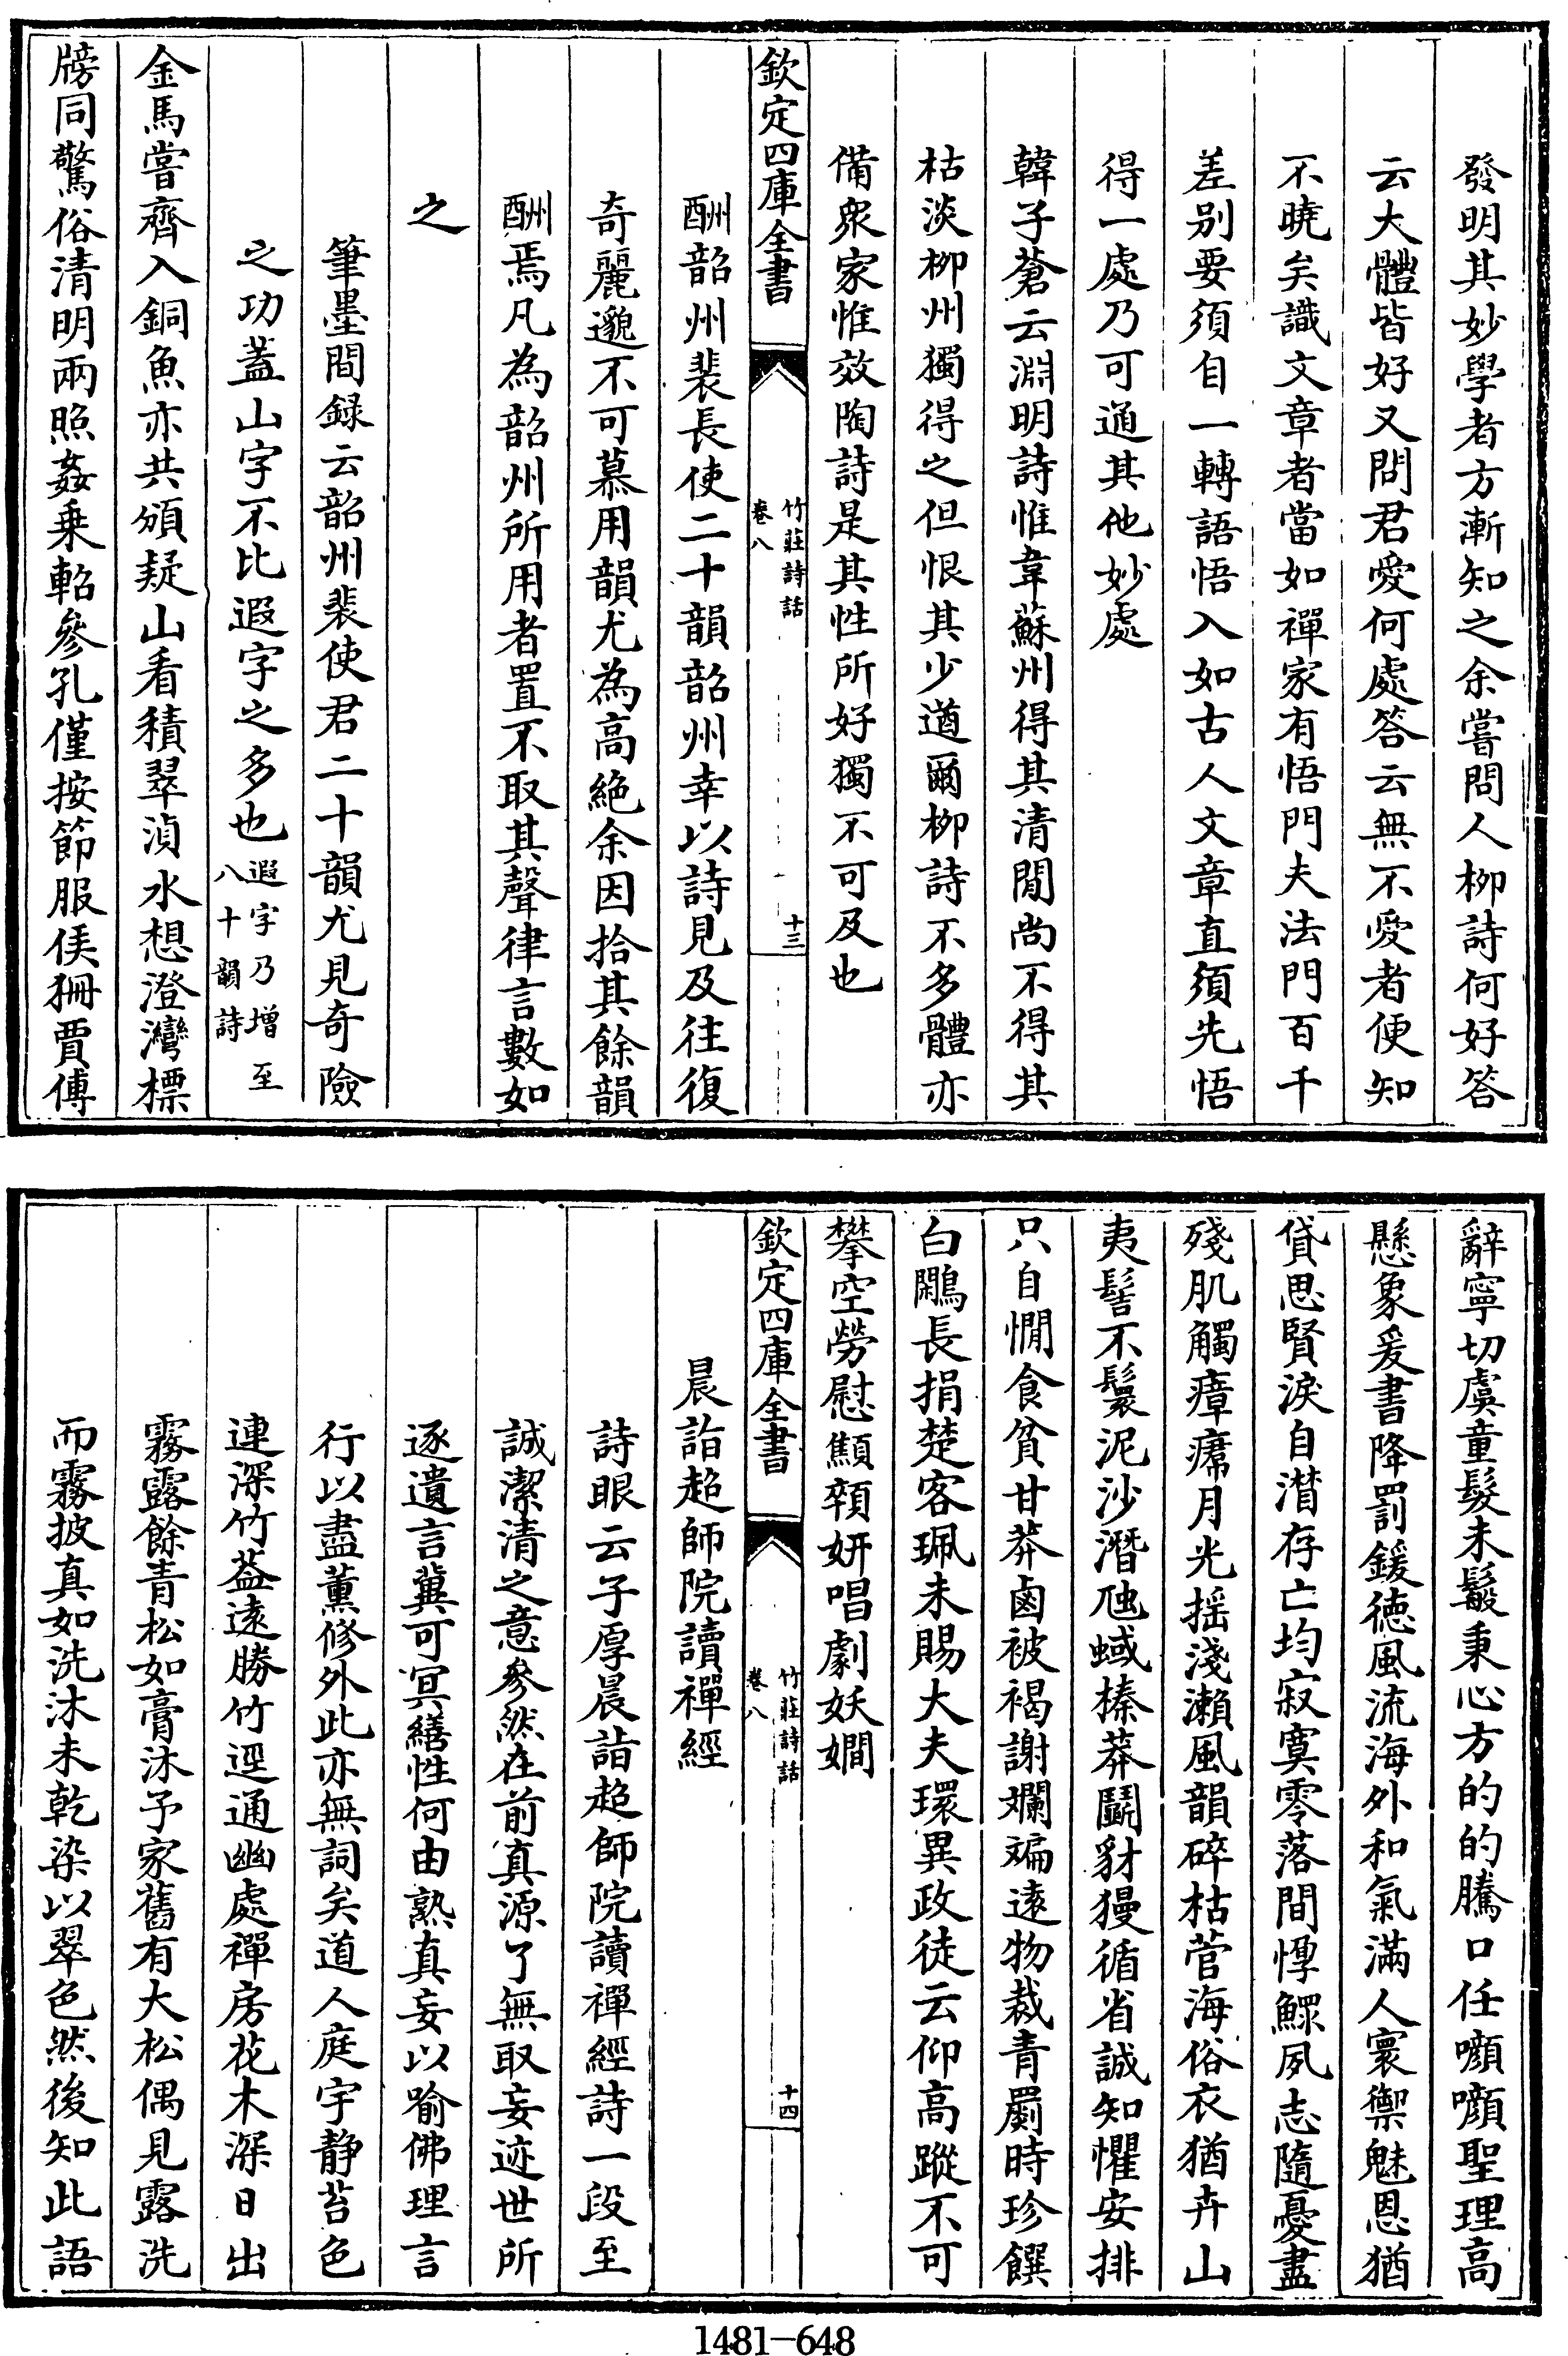 發明其妙學者方漸知之余嘗問人柳詩何好答
云大體皆好又問君愛何處答云無不愛者便知
不曉矣識文章者當如禪家有悟門夫法門百千
差别要須自一轉語悟入如古人文章直須先悟
得一處乃可通其他妙處
韓子蒼云淵明詩惟韋蘇州得其清閒尚不得其
枯淡柳州獨得之但恨其少遒爾柳詩不多體亦
備衆家惟效陶詩是其性所好獨不可及也
欽定四庫全書
竹莊詩話
卷八
十三
酬韶州裴長使二十韻韶州幸以詩見及往復
奇麗邈不可慕用韻尤為高絶余因拾其餘韻
酬焉凡為韶州所用者置不取其聲律言數如
之
筆墨間録云韶州裴使君二十韻尤見奇險
之功蓋山字不比遐字之多也遐字乃增至
八十韻詩
金馬嘗齊入銅魚亦共頒疑山看積翠湞水想澄灣標
牓同驚俗清明兩照姦乗軺參孔僅按節服侯狦賈傅
辭寧切虞童髮未鬉秉心方的的騰口任𡅖𡅖聖理高
懸象爰書降罰鍰徳風流海外和氣滿人寰禦魅恩猶
貸思賢淚自潸存亡均寂寞零落間惸鰥夙志隨憂盡
殘肌觸瘴㾌月光摇淺瀨風韻碎枯菅海俗衣猶卉山
夷髻不鬟泥沙潛虺蜮榛莽鬭豺獌循省誠知懼安排
只自憪食貧甘莽鹵被褐謝斕斒逺物裁青罽時珍饌
白鷴長捐楚客珮未賜大夫環異政徒云仰高蹤不可
攀空勞慰顦顇妍唱劇妖嫺
欽定四庫全書
竹莊詩話
卷八
十四
晨詣超師院讀禪經
詩眼云子厚晨詣超師院讀禪經詩一段至
誠潔清之意參然在前真源了無取妄迹世所
逐遺言冀可冥繕性何由熟真妄以喻佛理言
行以盡薫修外此亦無詞矣道人庭宇静苔色
連深竹葢逺勝竹逕通幽處禪房花木深日出
霧露餘青松如膏沐予家舊有大松偶見露洗
而霧披真如洗沐未乾染以翠色然後知此語
1481-648